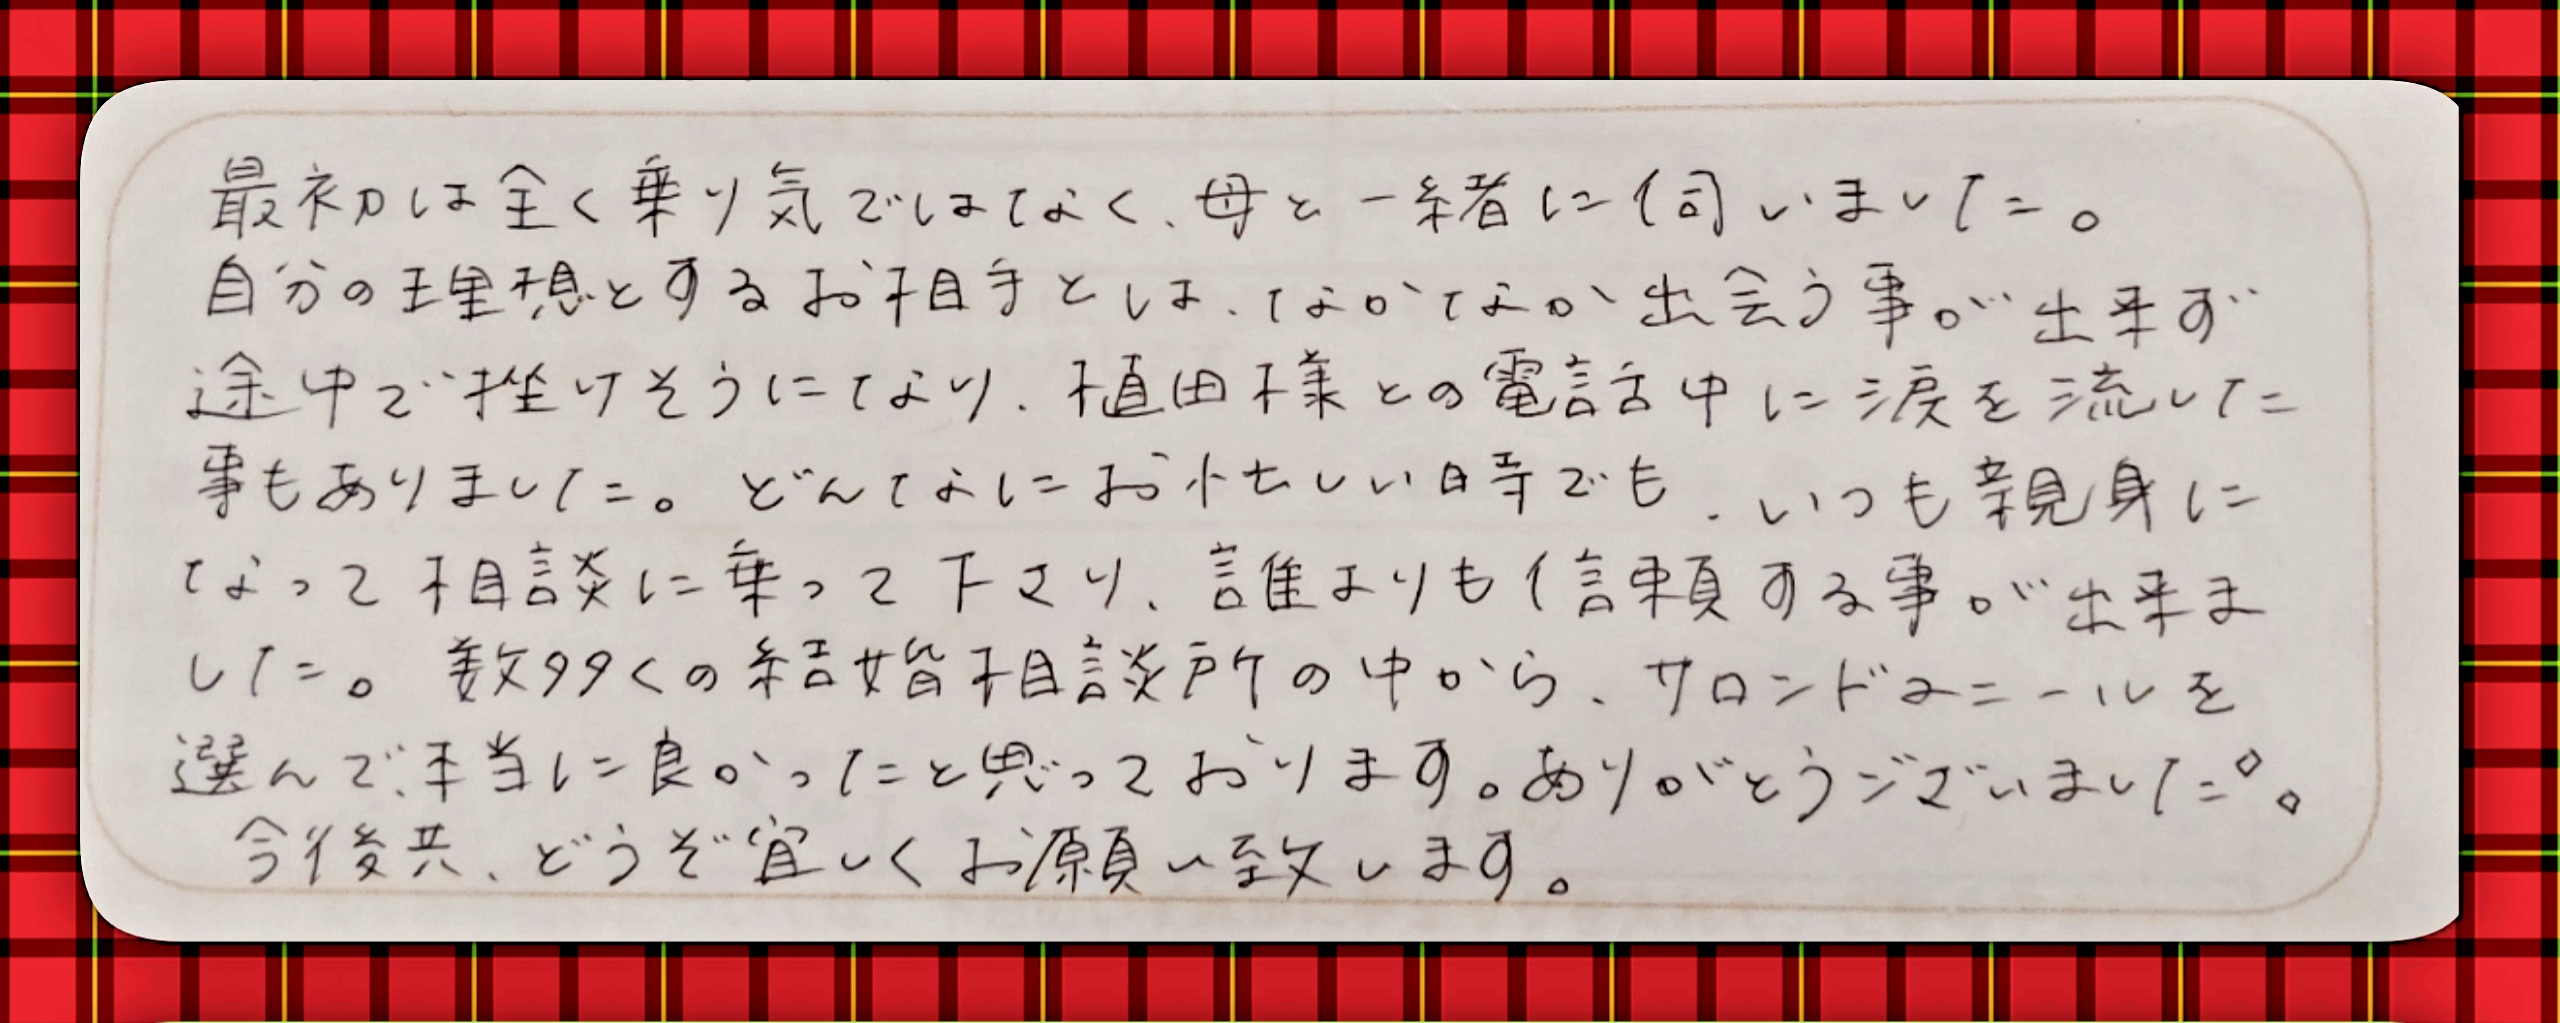 最初は全く乗り気ではなく、母と一緒に伺いました。
自分の理想とするお相手とは、なかなか出会う事が出来ず
途中で挫けそうになり、植田様との電話中に涙を流した
事もありました。どんなにお忙しい時でも、いつも親身に
なって相談に乗って下さり、誰よりも信頼する事が出来ま
した。数多くの結婚相談所の中から、サロンドマニールを
選んで、本当に良かったと思っております。ありがとうございました。
今後共、どうぞ宜しくお願い致します。